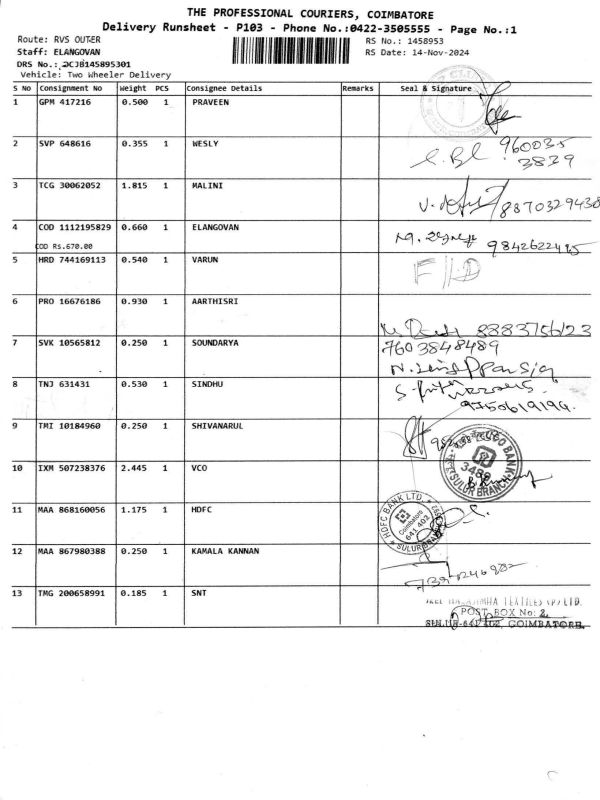 THE PROFESSIONAL COURIERS, COIMBATORE
Delivery Runsheet - P103 - Phone No.:0422-3505555 - Page No.:1
Route: RVS OUTER
RS No.: 1458953
Staff: ELANGOVAN
RS Date: 14-Nov-2024
DRS No.: DCJB145895301
Vehicle: Two Wheeler Delivery
S No Consignment No Weight PCS Consignee Details Remarks Seal & Signature
1 GPM 417216 0.500 1 PRAVEEN
2 SVP 648616 0.355 1 WESLY
960035
3839
3 TCG 30062052 1.815 1 MALINI
8870329438
4 COD 1112195829 0.660 1 ELANGOVAN
COD Rs.670.00
9842622495
5 HRD 744169113 0.540 1 VARUN
6 PRO 16676186 0.930 1 AARTHISRI
7 SVK 10565812 0.250 1 SOUNDARYA
7603848489
8 TNJ 631431 0.530 1 SINDHU
9 TMI 10184960 0.250 1 SHIVANARUL
10 IXM 507238376 2.445 1 VCO
UCO BANK
SULUR BRANCH
11 MAA 868160056 1.175 1 HDFC
HDFC BANK LTD.
Coimbatore
641 402
SULUR
12 MAA 867980388 0.250 1 KAMALA KANNAN
13 TMG 200658991 0.185 1 SNT
POST BOX No: 2
COIMBATORE